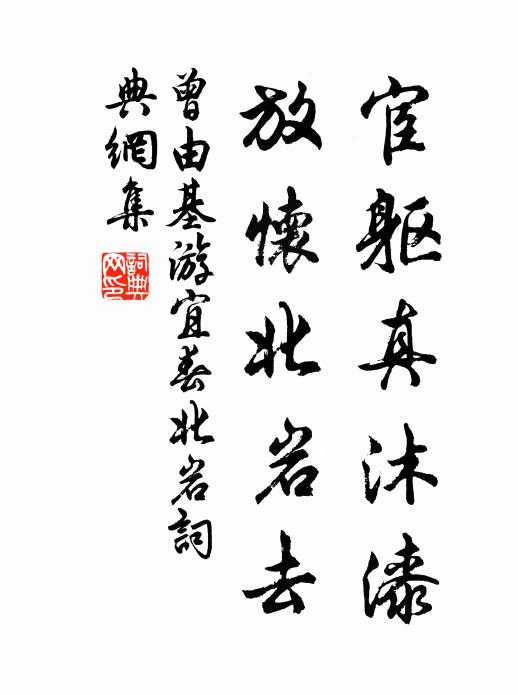 宦軀真沐漆
放懷北岩去
曾由基游宜春北岩詞
典網集
詞典网印